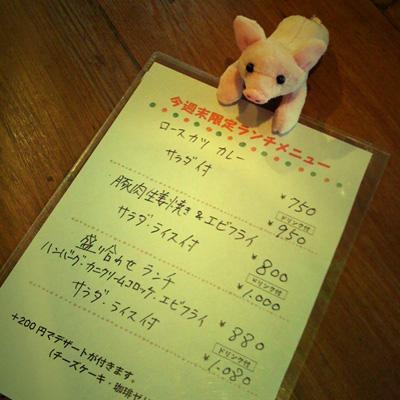 今週末限定ランチメニュー
ロースカツ カレー
サラダ付
¥750
ドリンク付
¥950
豚肉生姜焼き&エビフライ
サラダ・ライス付
¥800
ドリンク付
¥1,000
盛り合わせ ランチ
ハンバーグ・カニクリームコロッケ・エビフライ
サラダ・ライス付
¥880
ドリンク付
¥1,080
+200円でデザートが付きます。
(チーズケーキ・珈琲ゼリ